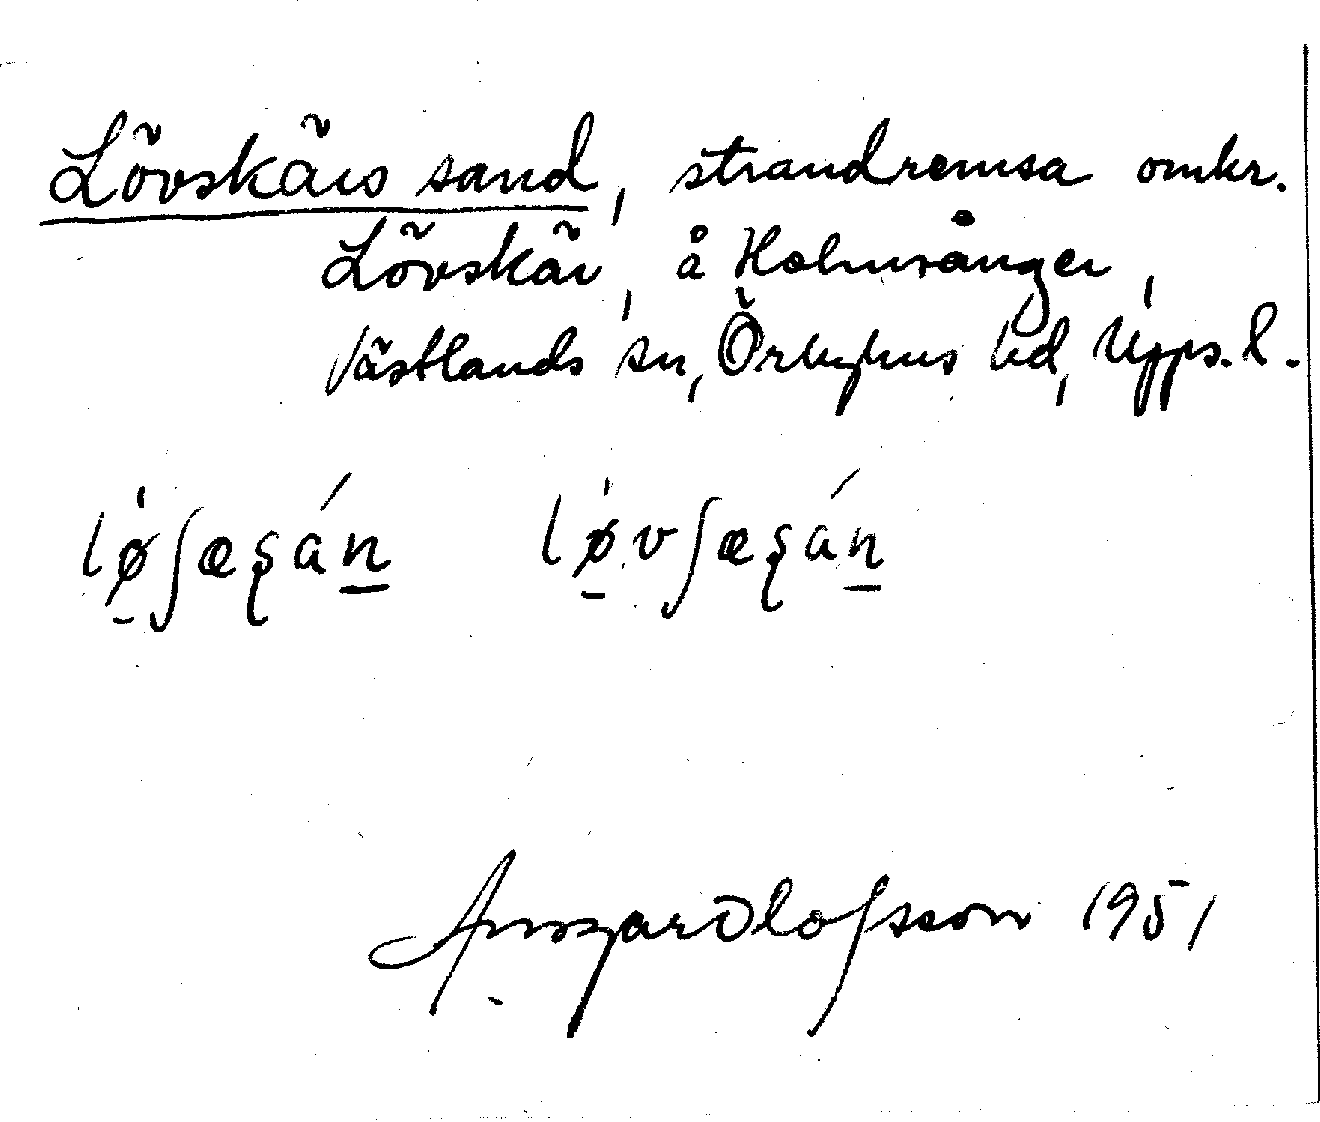 Lövskärs sand, strandremsa omkr.
Lövskär, å Holmsånger,
Västlands sn, Örbyhus hd, Upps. l.
lǿ̠ʃæʂán̠ lǿ̠vʃæʂán̠
Ansgar Olofsson 1951